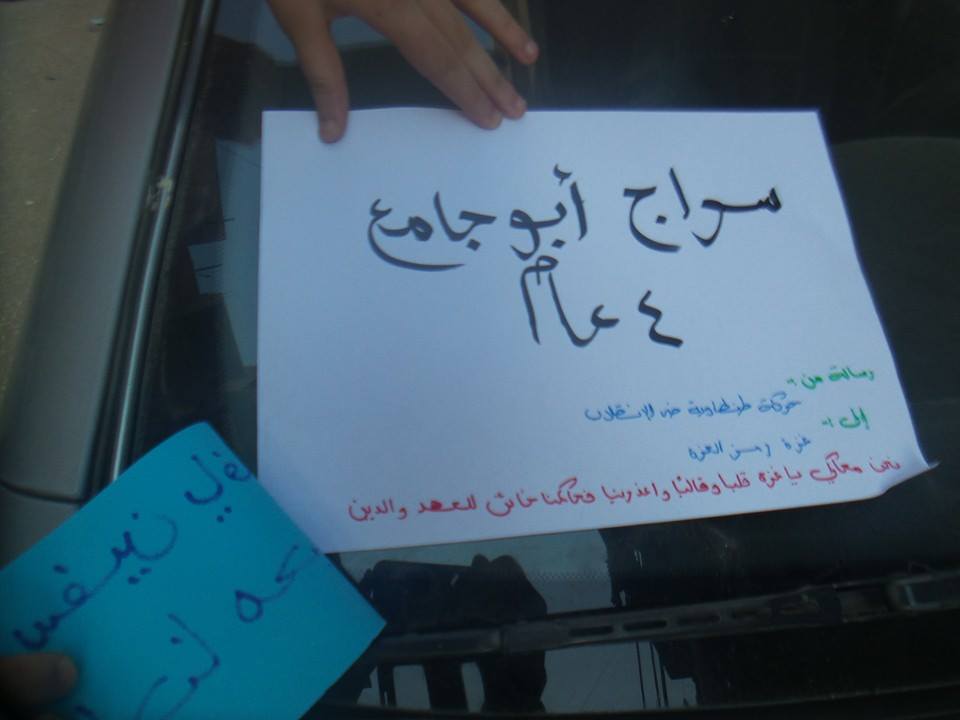 سراج أبو جامع
٤ عام
رسالة من :-
حركة طنطاوية ضد الإنقلاب
إلى :-
غزة رمز العزة
نحن معاكي يا غزه قلبا وقالبا واعذرينا فحاكمنا خائن للعهد والدين